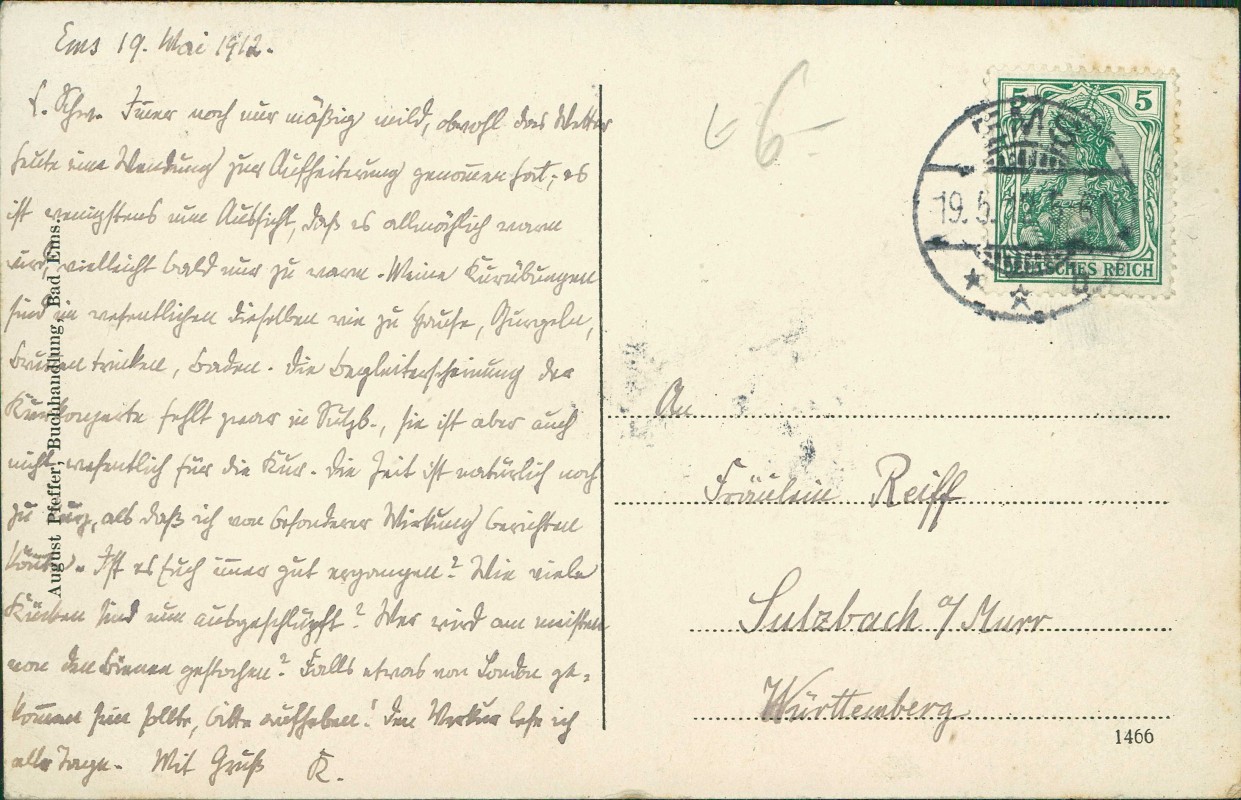 Ems 19. Mai 1912.
L. Schw. Immer noch nur mäßig mild, obwohl das Wetter
heute eine Wendung zur Aufheiterung genommen hat; es
ist wenigstens nun Aussicht, daß es allmählich warm
und vielleicht bald nur zu warm. Meine Kurübungen
sind im wesentlichen dieselben wie zu Hause, Gurgeln,
Brunnen trinken, Baden. Die Begleiterscheinung der
Kurkonzerte fehlt zwar in Sulzb., sie ist aber auch
nicht wesentlich für die Kur. Die Zeit ist natürlich noch
zu kurz, als daß ich von besonderer Wirkung berichten
könnte. Ist es Euch immer gut ergangen? Wie viele
Kücken sind nun ausgeschlüpft? Wer wird am meisten
von den Bienen gestochen? Falls etwas von London ge-
kommen sein sollte, bitte aufheben! Den Merkur lese ich
alle Tage. Mit Gruß K.
August Pfeffer, Buchhandlung, Bad Ems.
6-
5 5
DEUTSCHES REICH
EMS
19.5.12. 5-6N
An
Fräulein Reiff
Sulzbach a/Murr
Württemberg
1466